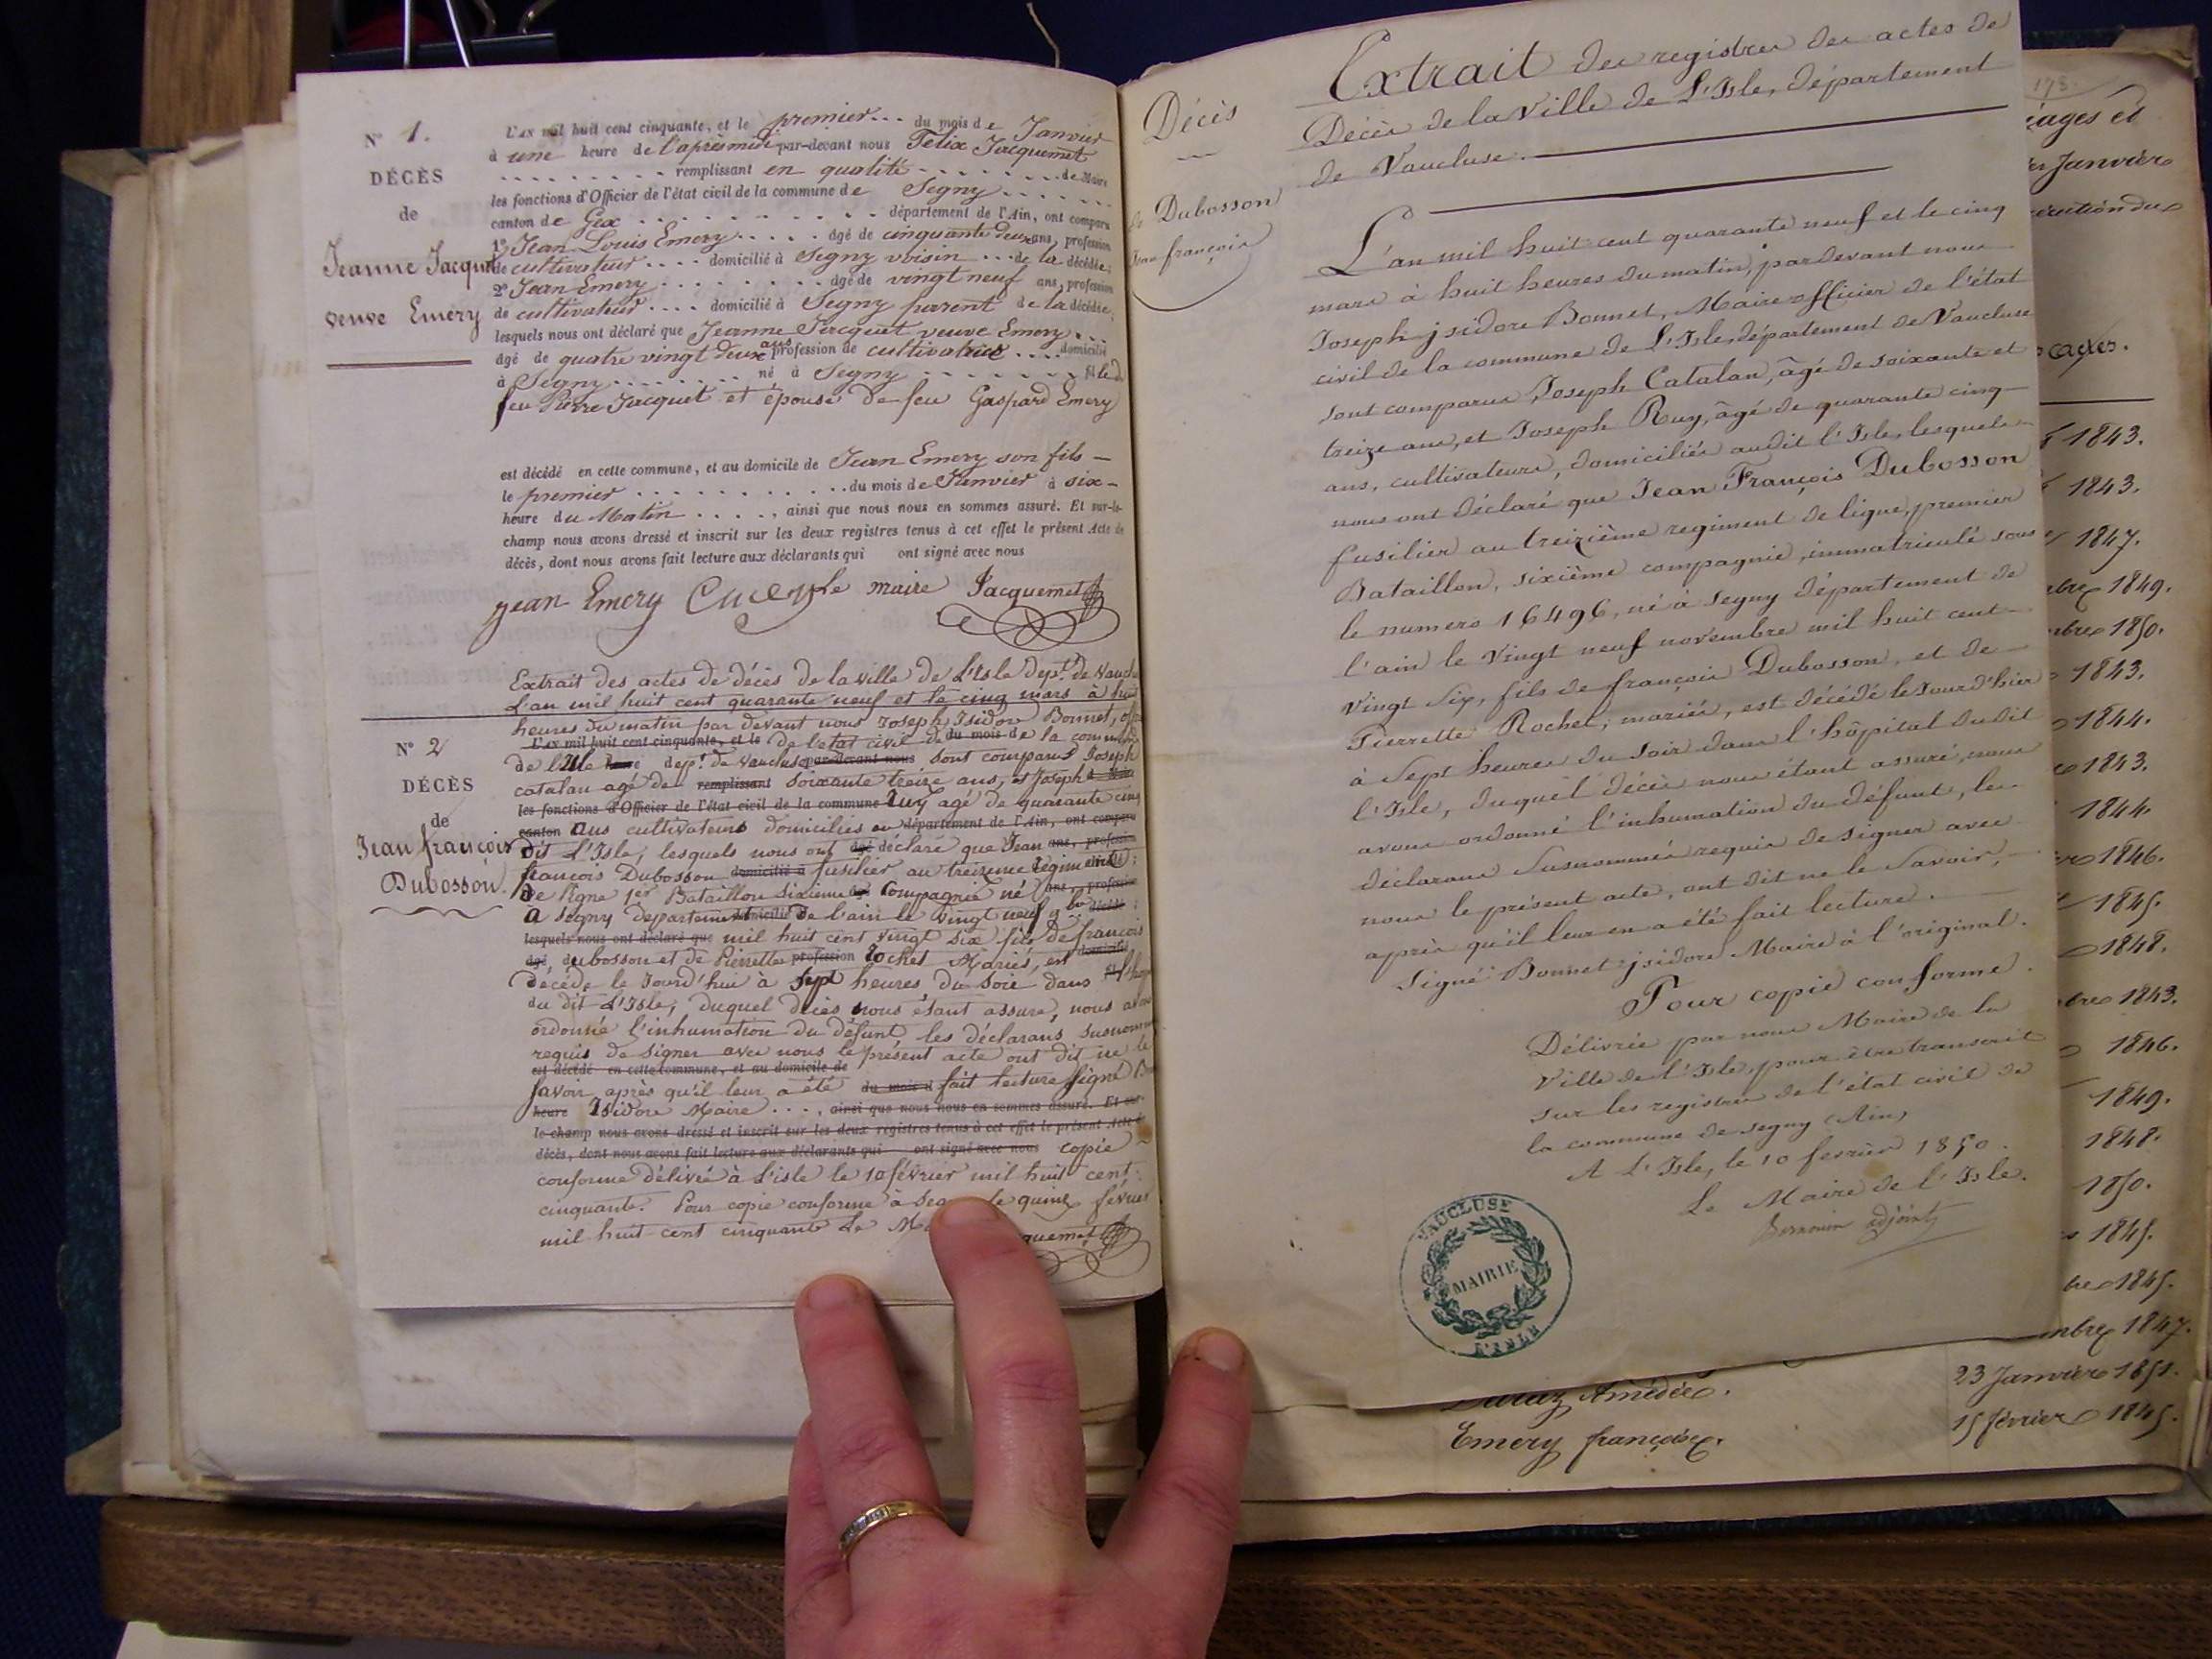 N° 1.
DÉCÈS
de
Jeanne Jacquet
veuve Emery
L'AN mil huit cent cinquante, et le premier... du mois de Janvier
à une heure de l'après midi par-devant nous Felix Jacquemet
remplissant en qualité de Maire
les fonctions d'Officier de l'état civil de la commune de Segny
canton de Gex département de l'Ain, ont comparu
1° Jean Louis Emery.... âgé de cinquante deux ans, profession
de cultivateur.... domicilié à Segny voisin... de la décédée;
2° Jean Emery........ âgé de vingt neuf ans, profession
de cultivateur.... domicilié à Segny parent de la décédée;
lesquels nous ont déclaré que Jeanne Jacquet veuve Emery...
âgé de quatre vingt deux ans profession de cultivatrice.... domicilié
à Segny....... né à Segny
feu Pierre Jacquet et épouse de feu Gaspard Emery
est décédé en cette commune, et au domicile de Jean Emery son fils —
le premier........... du mois de Janvier à six —
heure du Matin....., ainsi que nous nous en sommes assuré. Et sur-le-
champ nous avons dressé et inscrit sur les deux registres tenus à cet effet le présent Acte de
décès, dont nous avons fait lecture aux déclarants qui ont signé avec nous
Jean Emery Emery le maire Jacquemet
N° 2
DÉCÈS
de
Jean françois
Dubosson.
Extrait des actes de décès de la ville de L'Isle dept. de Vaucl
L'an mil huit cent quarante neuf et le cinq mars à huit
heures du matin par devant nous Joseph Isidore Bonnet,
L'AN mil huit cent cinquante, et le de l'état civil de du mois de la commune
de l'Isle heure dept. de Vaucluse par-devant nous sont comparus Joseph
catalan agé de remplissant soixante treize ans, et Joseph
les fonctions d'Officier de l'état civil de la commune Ruy agé de quarante cinq
canton ans cultivateurs domiciliés au département de l'Ain, ont comparu
dit L'Isle, lesquels nous ont âgé déclaré que Jean ans, profession
françois Dubosson domicilié à fusilier au treizieme régiment
de ligne 1er Bataillon sixieme Compagnie né ans, profession
à Segny departement domicilié de l'ain le vingt neuf 9bre
lesquels nous ont déclaré que mil huit cent vingt six fils de francois
âgé dubosson et de Pierrette profession Rochet Mariés, est domicilié
décédé le Jourd'hui à sept heures du soir dans
du dit L'Isle, duquel décès nous étant assuré, nous
ordonné l'inhumation du défunt les déclarans
requis de signer avec nous le présent acte ont dit ne le
est décédé en cette commune, et au domicile de
savoir après qu'il leur a été du mois d fait lecture signé
heure Isidore Maire..., ainsi que nous nous en sommes assuré. Et sur-
le-champ nous avons dressé et inscrit sur les deux registres tenus à cet effet le présent Acte
décès, dont nous avons fait lecture aux déclarants qui ont signé avec nous copie
conforme délivrée à L'isle le 10 février mil huit cent
cinquante. Pour copie conforme à le quinze février
mil huit cent cinquante Le
Décès
—
de Dubosson
Jean françois
Extrait des registres des actes de
Décès de la ville de L'Isle, département
de Vaucluse.
L'an mil huit cent quarante neuf et le cinq
mars à huit heures du matin, pardevant nous
Joseph jsidore Bonnet, Maire officier de l'état
civil de la commune de L'Isle, département de Vaucluse
sont comparus Joseph Catalan, âgé de soixante et
treize ans, et Joseph Ruy, âgé de quarante cinq
ans, cultivateurs, domiciliés audit l'Isle, lesquels
nous ont déclaré que Jean François Dubosson
fusilier au treizième regiment de ligne, premier
Bataillon, sixième compagnie, immatriculé sous
le numero 16496, né à Segny département de
l'ain le vingt neuf novembre mil huit cent
vingt six, fils de françois Dubosson, et de
Pierrette Rochet, mariés, est décédé le Jourd'hier
à sept heures du soir dans l'hôpital dudit
l'Isle, duquel décès nous étant assuré, nous
avons ordonné l'inhumation du défunt, les
déclarans susnommés requis de signer avec
nous le présent acte, ont dit ne le savoir,
après qu'il leur en a été fait lecture.
Signé Bonnet jsidore Maire à l'original.
Pour copie conforme.
Délivrée par nous Maire de la
Ville de l'Isle, pour être transcrit
sur les registres de l'état civil de
la commune de Segny (Ain)
A L'Isle, le 10 fevrier 1850.
Le Maire de l'Isle.
adjoint
VAUCLUSE
MAIRIE
L'ISLE
173.
Janvier
1843.
1843.
1847.
1849.
1850.
1843.
1844.
1843.
1844.
1846.
1845.
1848.
1843.
1846.
1849.
1848.
1850.
1845.
1845.
1847.
Amédée. 23 Janvier 1851.
Emery françoise. 15 février 1845.